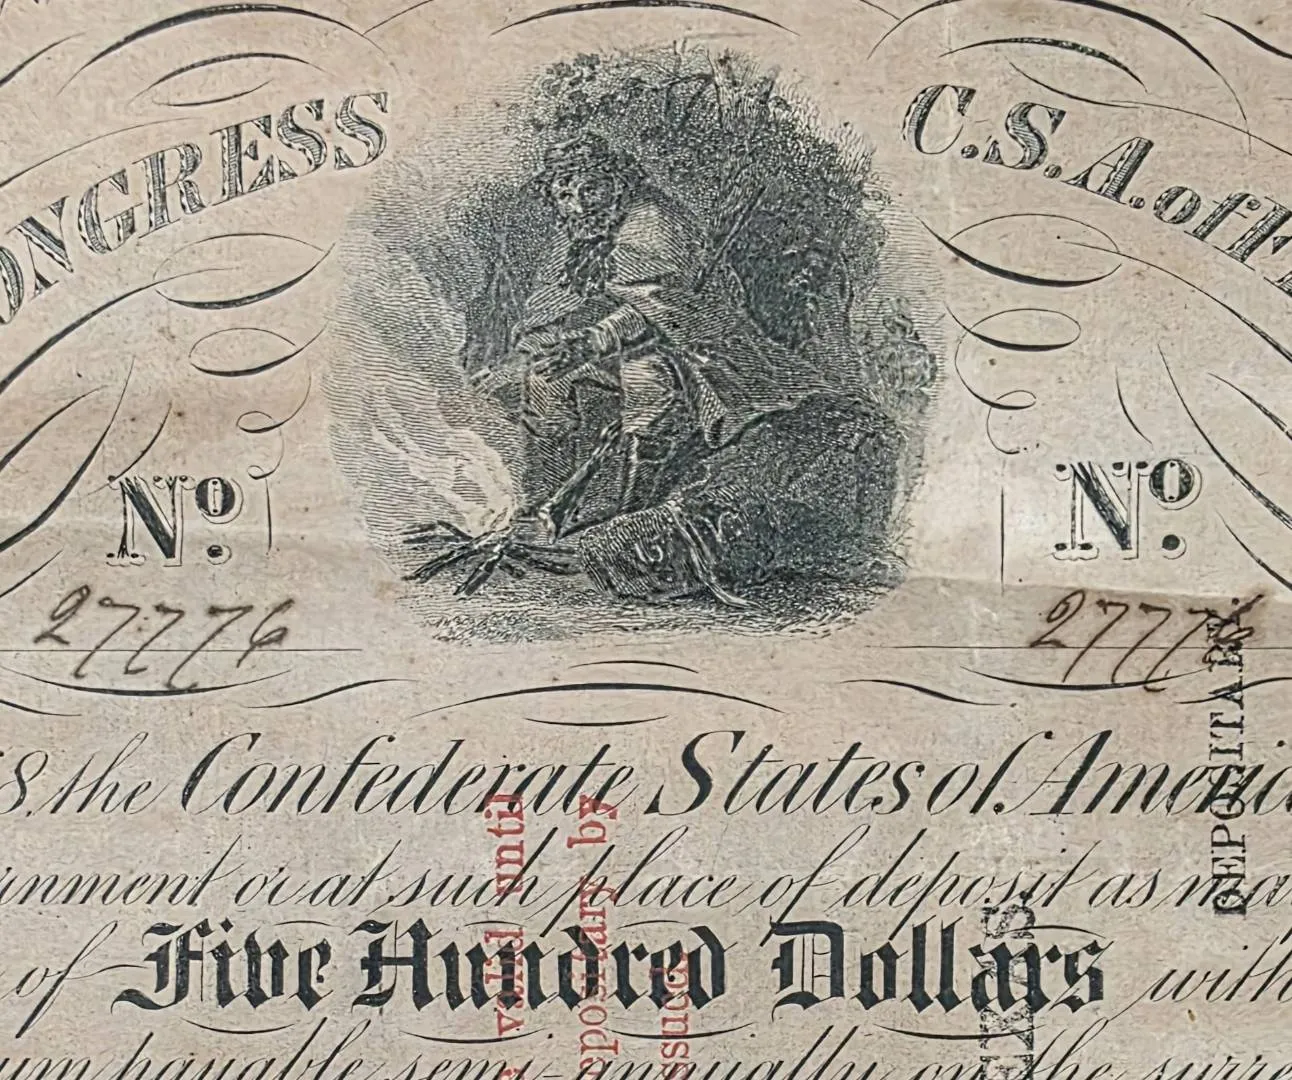 ONGRESS C.S.A. of
No. No.
27776 27776
8, the Confederate States of America
rnment or at such place of deposit as ma
of Five Hundred Dollars with
um payable semi-annually on the surre
valid until
epositary by
ssued.
DEPOSITARY.